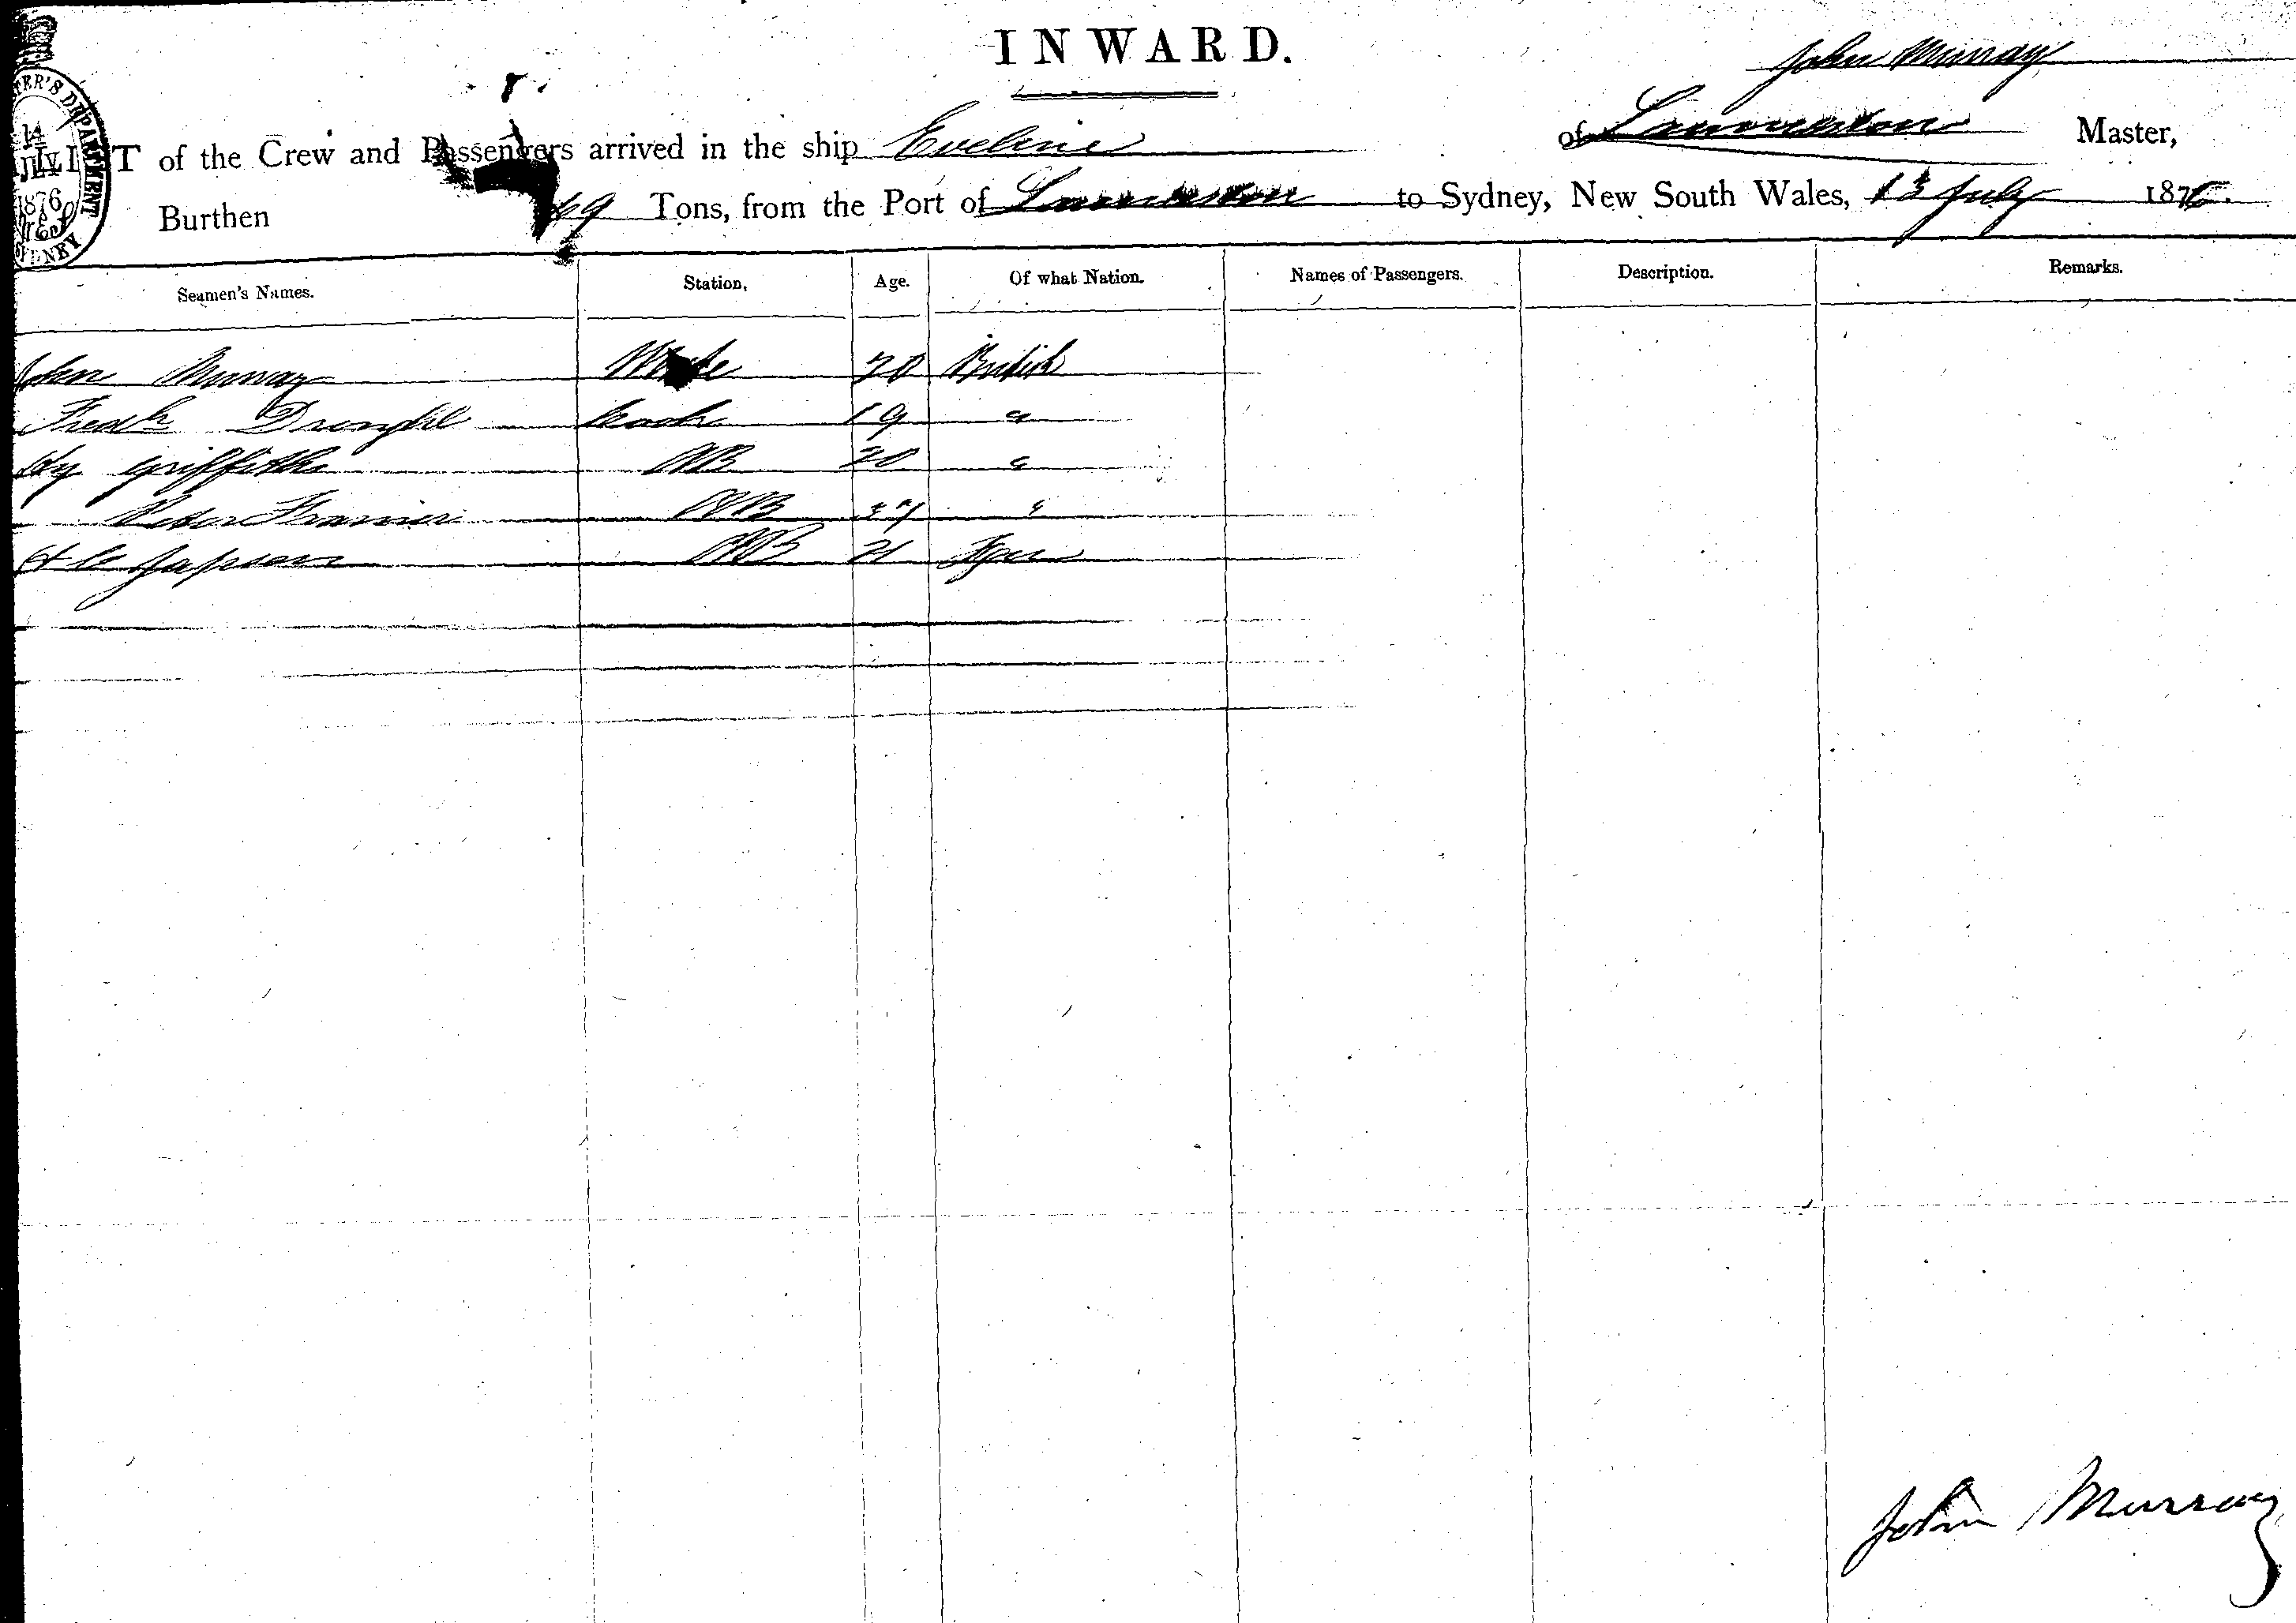 INWARD.
John Murray
LIST of the Crew and Passengers arrived in the ship Eveline of Launceston Master,
Burthen 69 Tons, from the Port of Launceston to Sydney, New South Wales, 13 July 1876.
14
JULY
1876
SYDNEY
Seamen's Names. Station, Age. Of what Nation. Names of Passengers. Description. Remarks.
John Murray Mate 20 British
Fredk Cook 19 "
Hy Griffiths AB 20 "
AB "
AB 21
John Murray